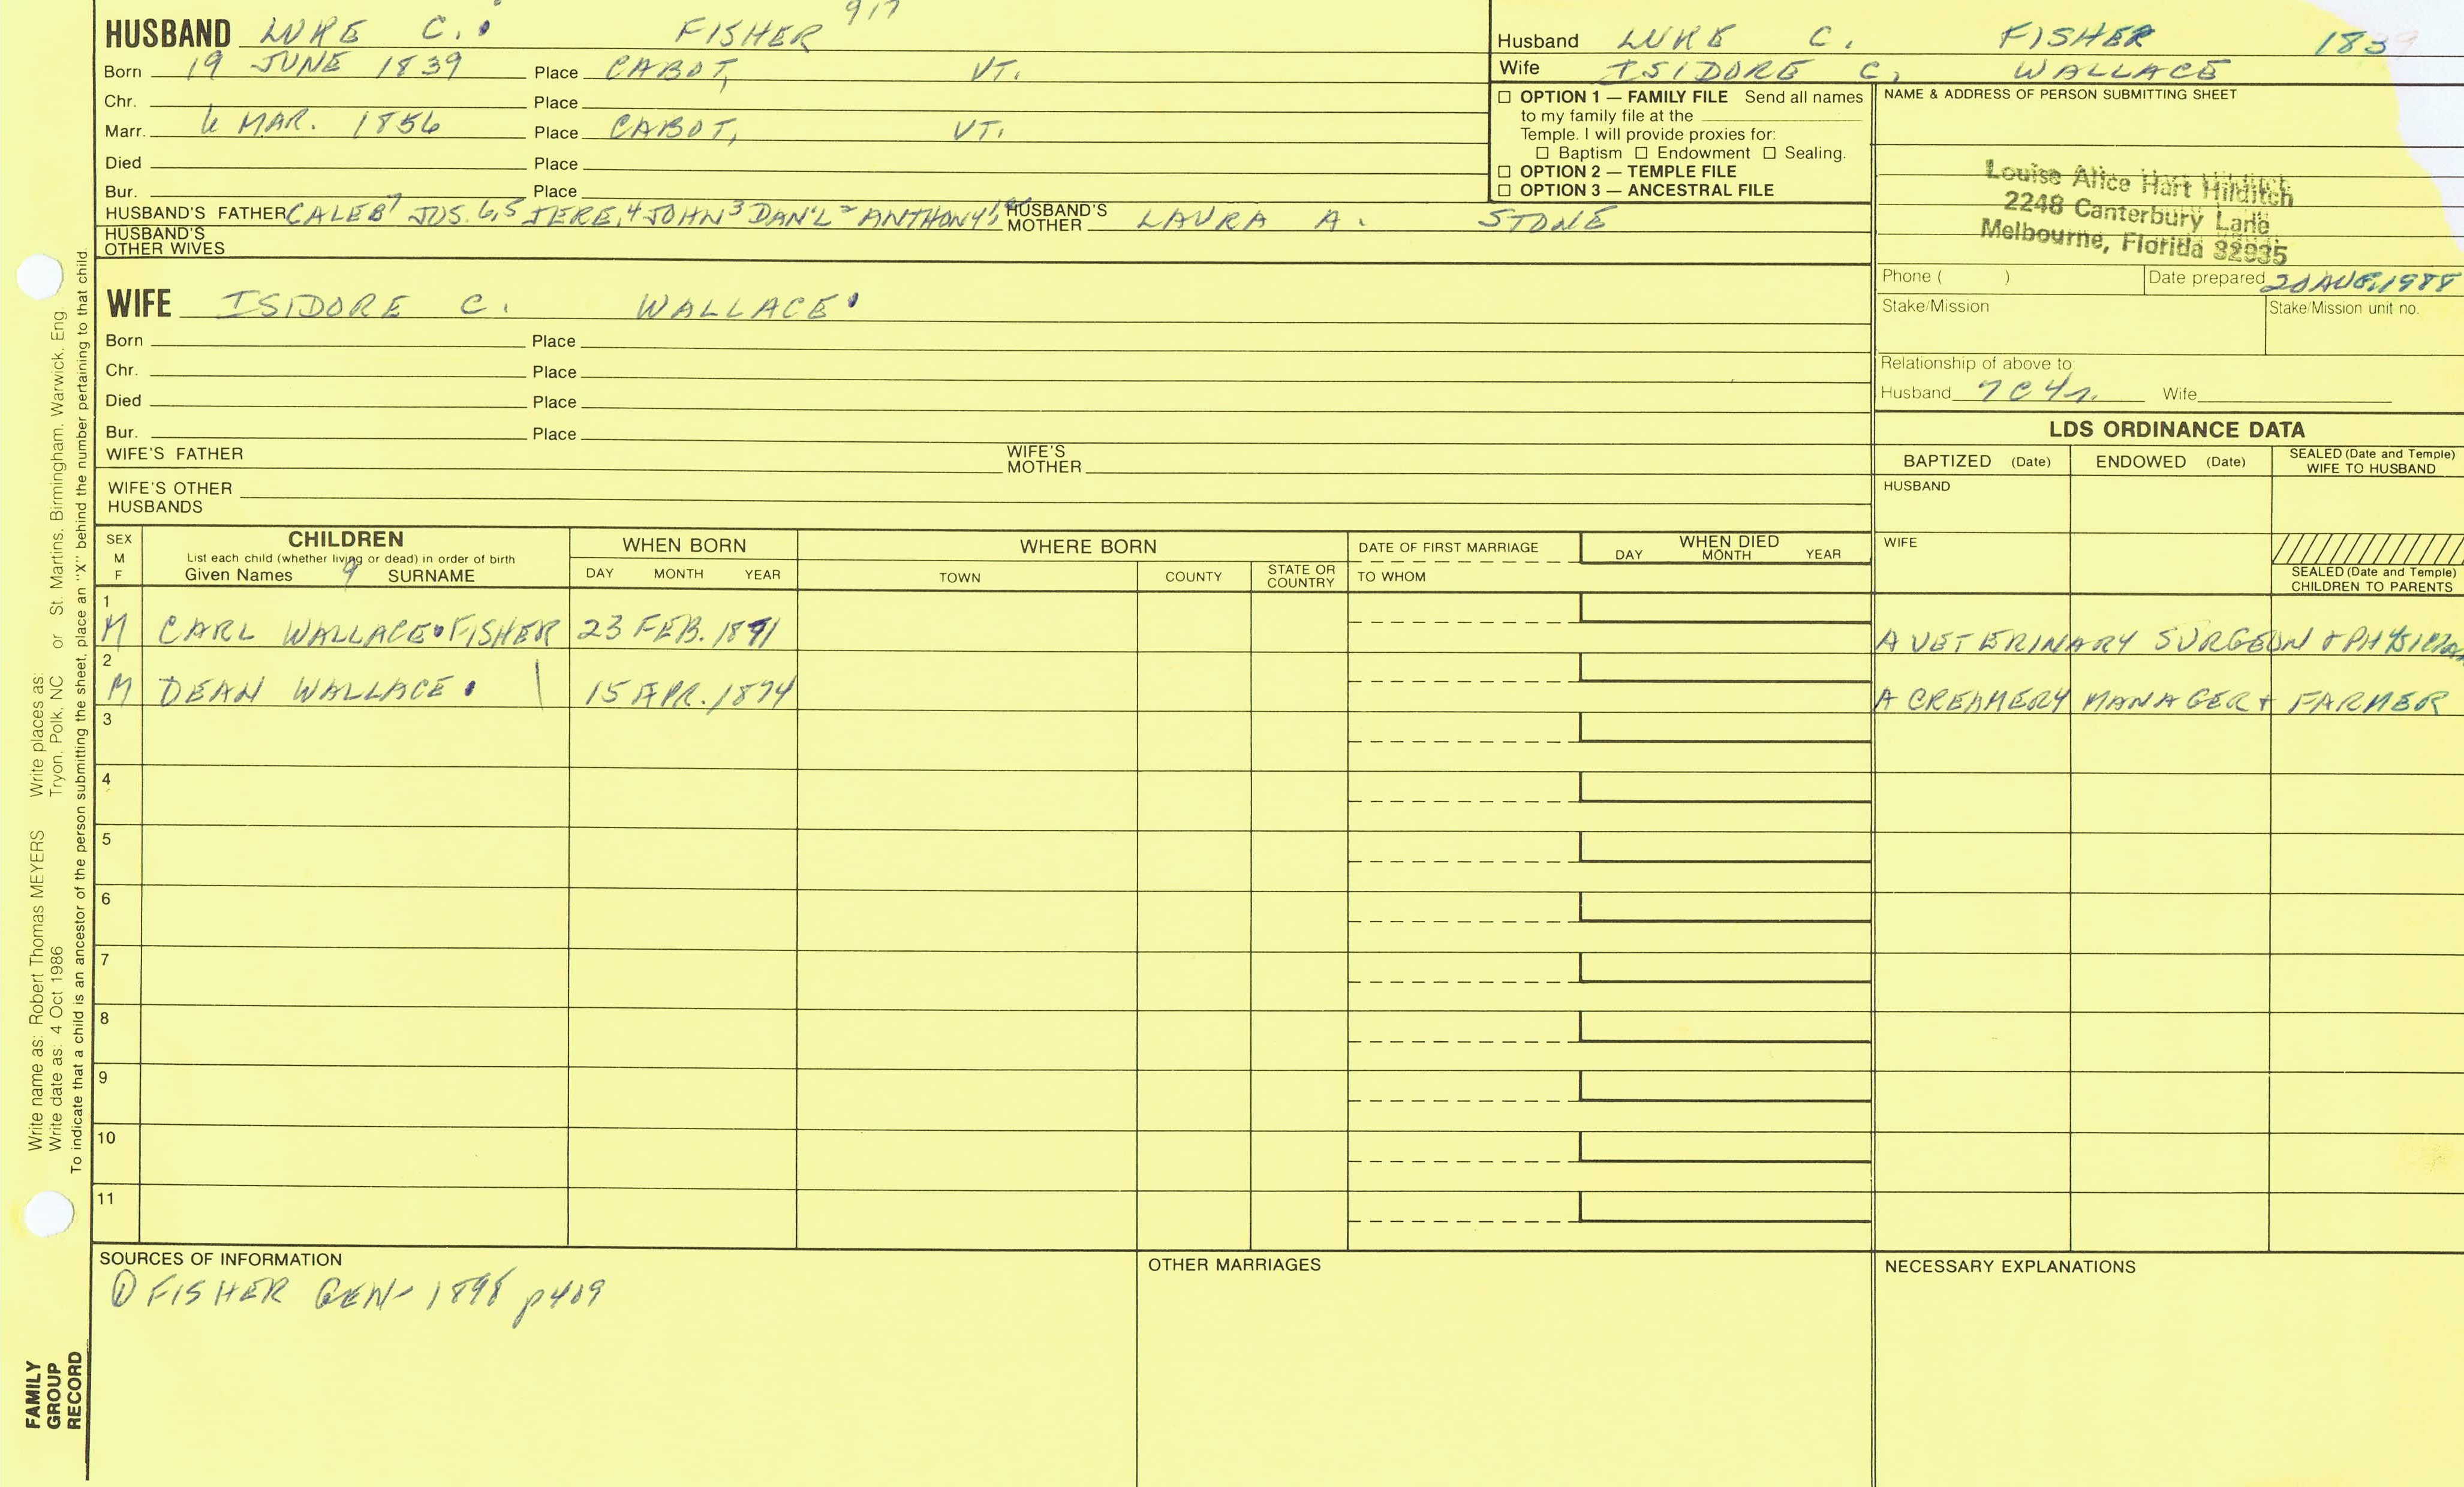 917
HUSBAND LUKE C. FISHER
Born 19 JUNE 1839 Place CABOT, VT.
Chr. Place
Marr. 6 MAR. 1856 Place CABOT, VT.
Died Place
Bur. Place
HUSBAND'S FATHER CALEB7 JOS.6,5 JERE,4 JOHN3 DAN'L2 ANTHONY1 HUSBAND'S MOTHER LAURA A. STONE
HUSBAND'S OTHER WIVES
WIFE ISIDORE C. WALLACE
Born Place
Chr. Place
Died Place
Bur. Place
WIFE'S FATHER WIFE'S MOTHER
WIFE'S OTHER HUSBANDS
Husband LUKE C. FISHER 1839
Wife ISIDORE C. WALLACE
☐ OPTION 1 — FAMILY FILE Send all names
to my family file at the
Temple. I will provide proxies for:
☐ Baptism ☐ Endowment ☐ Sealing.
☐ OPTION 2 — TEMPLE FILE
☐ OPTION 3 — ANCESTRAL FILE
NAME & ADDRESS OF PERSON SUBMITTING SHEET
Louise Alice Hart Hilditch
2248 Canterbury Lane
Melbourne, Florida 32935
Phone ( ) Date prepared 20 AUG. 1988
Stake/Mission Stake/Mission unit no.
Relationship of above to:
Husband 7C4r. Wife
LDS ORDINANCE DATA
BAPTIZED (Date) ENDOWED (Date) SEALED (Date and Temple) WIFE TO HUSBAND
HUSBAND
WIFE
SEALED (Date and Temple) CHILDREN TO PARENTS
SEX M F
CHILDREN
List each child (whether living or dead) in order of birth
Given Names 9 SURNAME
WHEN BORN
DAY MONTH YEAR
WHERE BORN
TOWN COUNTY STATE OR COUNTRY
DATE OF FIRST MARRIAGE
TO WHOM
WHEN DIED
DAY MONTH YEAR
1
M CARL WALLACE FISHER 23 FEB. 1871 A VETERINARY SURGEON & PHYSICIAN
2
M DEAN WALLACE 15 APR. 1874 A CREAMERY MANAGER & FARMER
3
4
5
6
7
8
9
10
11
SOURCES OF INFORMATION
① FISHER GEN- 1898 p409
OTHER MARRIAGES
NECESSARY EXPLANATIONS
Write name as: Robert Thomas MEYERS Write places as:
Write date as: 4 Oct 1986 Tryon, Polk, NC or St. Martins, Birmingham, Warwick, Eng
To indicate that a child is an ancestor of the person submitting the sheet, place an "X" behind the number pertaining to that child.
FAMILY
GROUP
RECORD